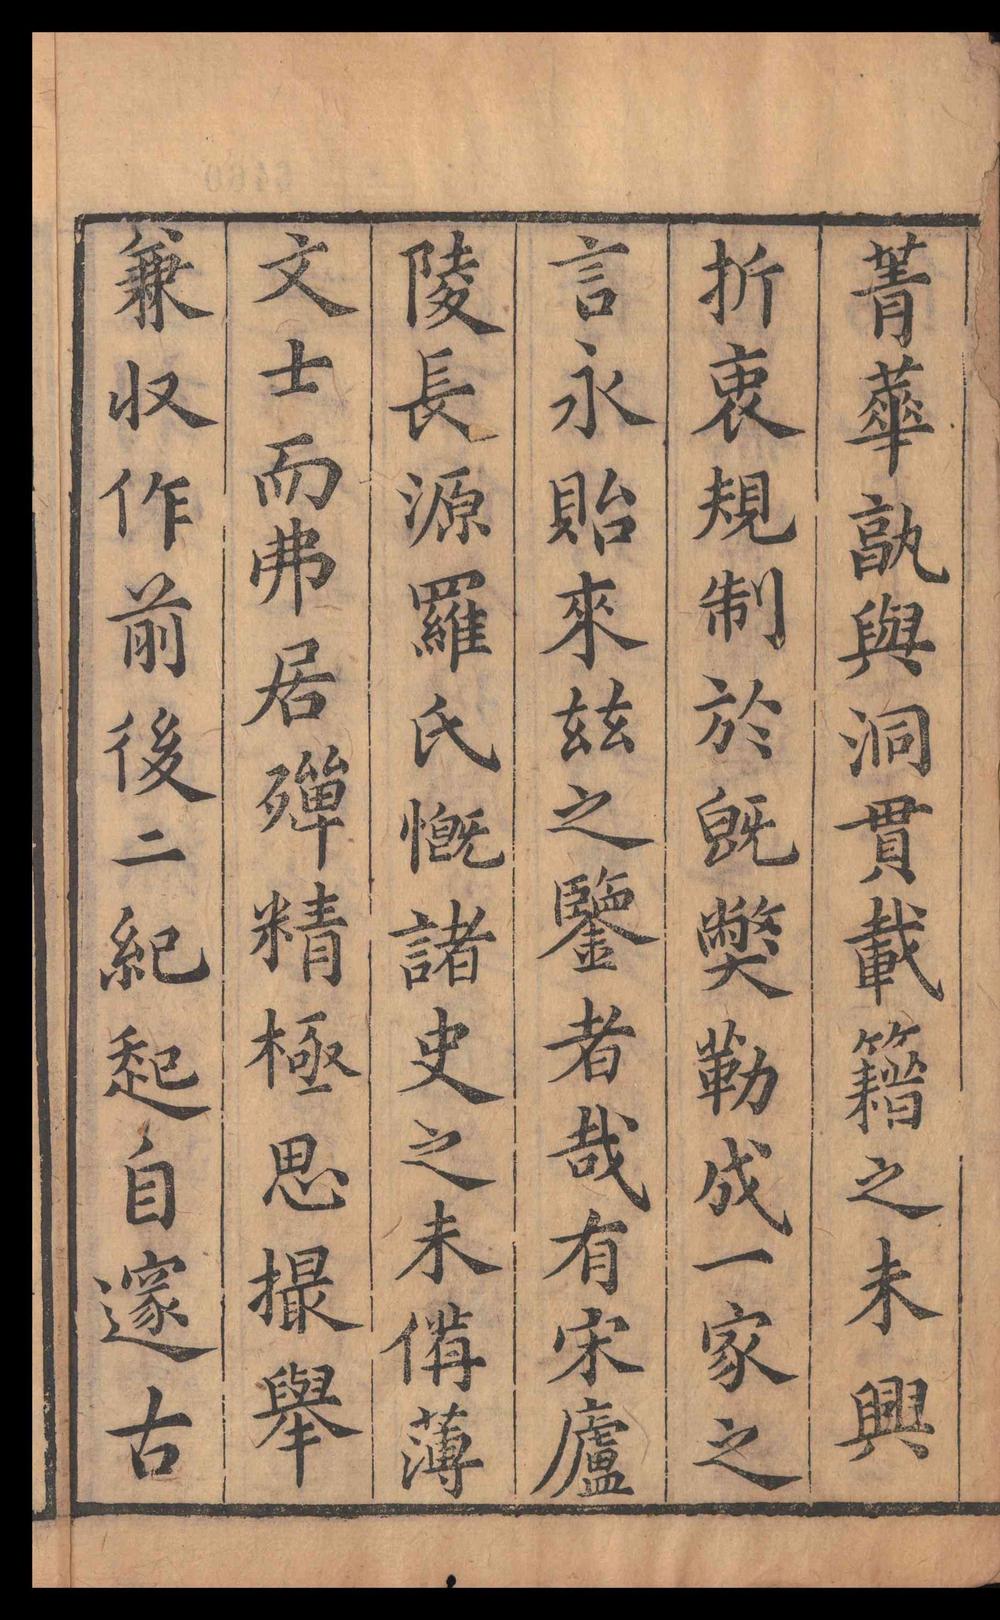 菁華孰與洞貫載籍之未興
折衷規制於旣獘勒成一家之
言永貽來玆之鑒者哉有宋廬
陵長源羅氏慨諸史之未偹薄
文士而弗居殫精極思撮舉
兼収作前後二紀起自邃古